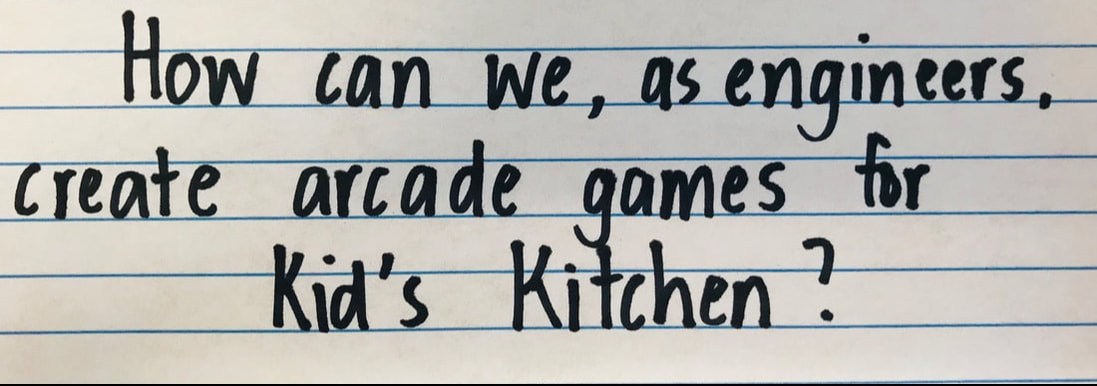 How can we, as engineers,
create arcade games for
Kid's Kitchen?